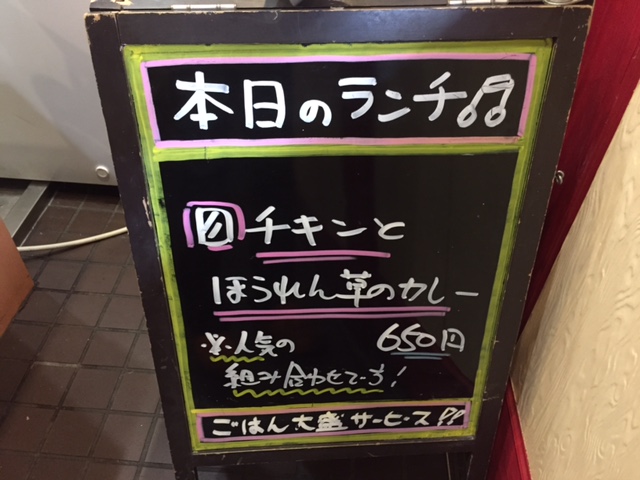 本日のランチ♫
日チキンと
ほうれん草のカレー
※人気の 650円
組み合わせです!
ごはん大盛サービス!!